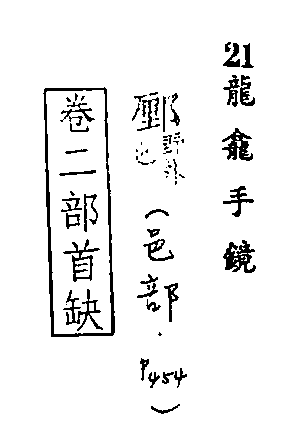 21龍龕手鏡
鄽野外也（邑部．P454）
卷二部首缺